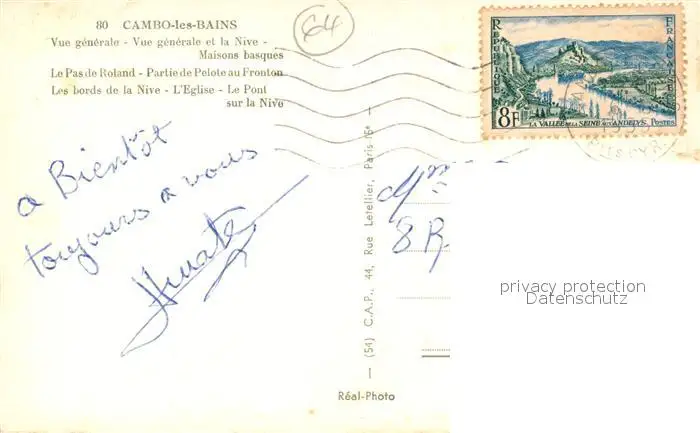 80 CAMBO-les-BAINS
64
Vue générale - Vue générale et la Nive -
Maisons basques
Le Pas de Roland - Partie de Pelote au Fronton
Les bords de la Nive - L'Eglise - Le Pont
sur la Nive
REPUBLIQUE FRANCAISE
8F
LA VALLÉE DE LA SEINE AUX ANDELYS POSTES
a Bientôt
toujours a vous
(54) C.A.P., 44, Rue Letellier, Paris-15e
Mme
8 R
privacy protection
Datenschutz
Réal-Photo